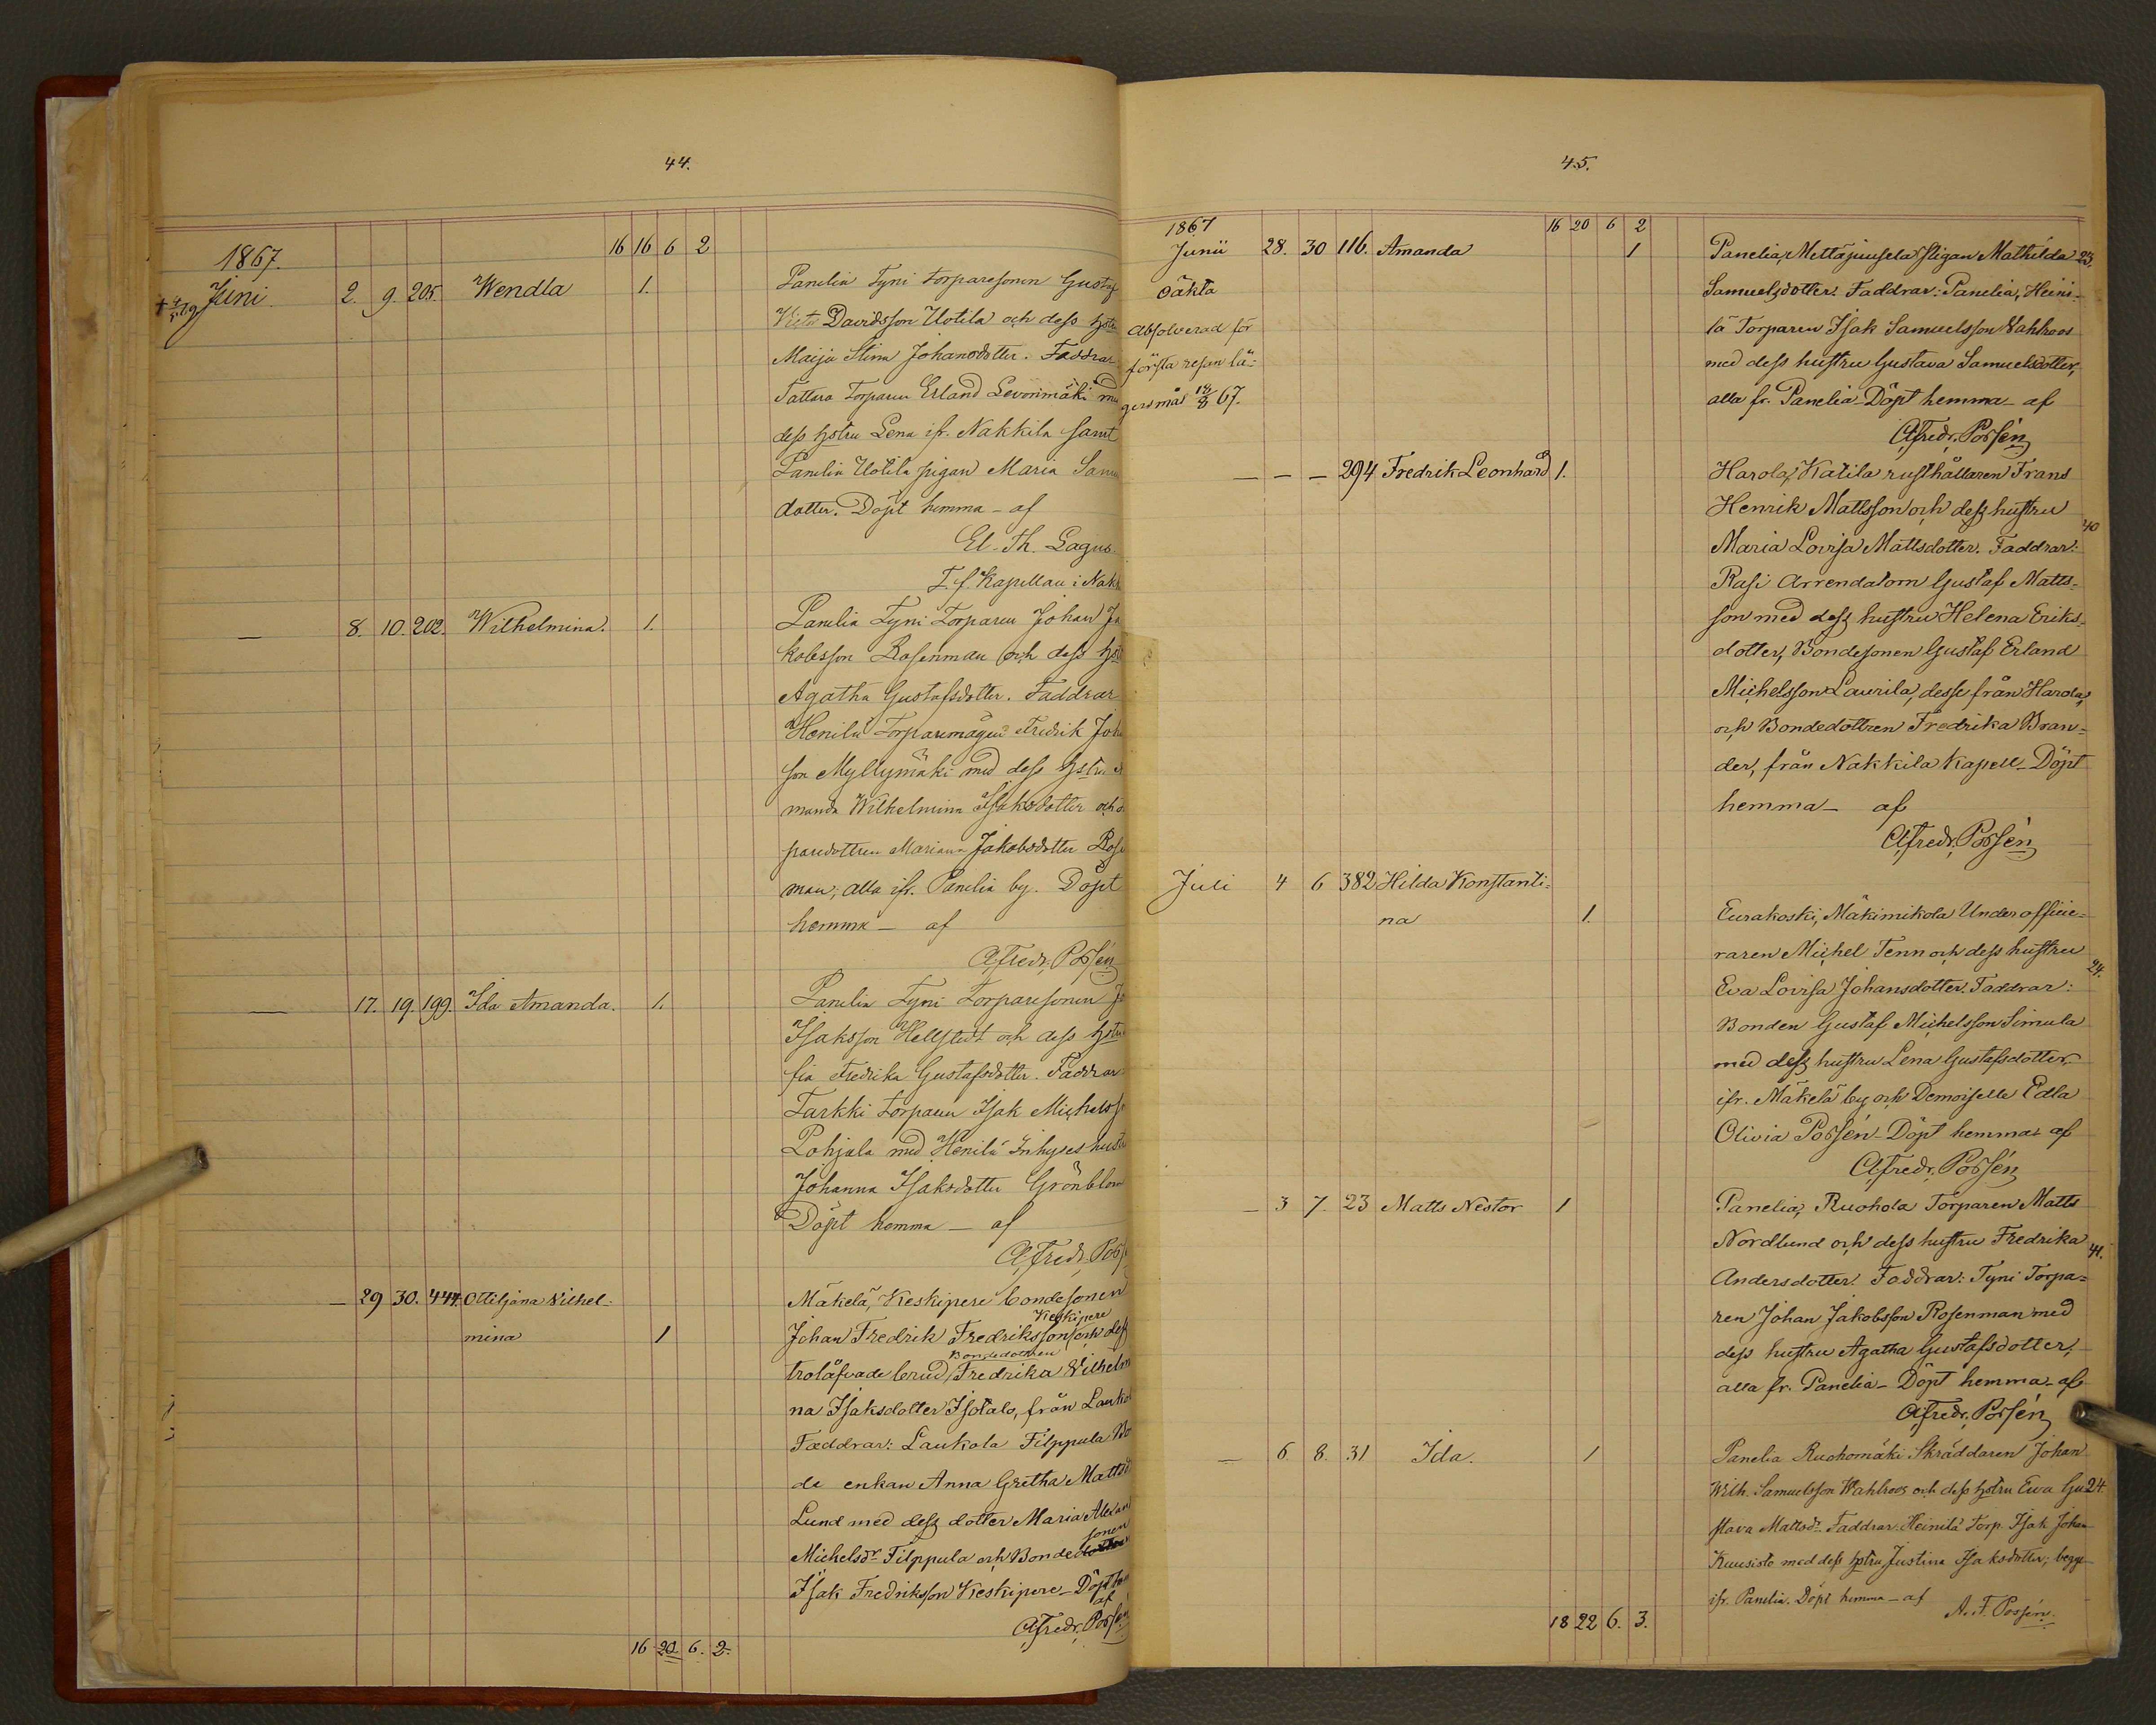 44.
16 16 6 2
1867.
Juni 2. 9. 205. Wendla 1. Panelia Tyni torparesonen Gustaf
Victor Davidsson Uotila och dess hstru
Maija Stina Johansdotter. Faddrar
Tattara torparen Erland Levonmäki med
dess hstru Lena ifr. Nakkila samt
Panelia Uotila pigan Maria Samu
dotter. Döpt hemma – af
El. Th. Lagus
T. f. Kapellan i Nakk
— 8. 10. 202. Wilhelmina. 1. Panelia Tyni Torparen Johan Ja
kobsson Rosenman och dess hstr
Agatha Gustafsdotter. Faddrar
Henilä Torparemågen Fredrik Joh
son Myllymäki med dess hstru A
manda Wilhelmina Isaksdotter och
paredottren Mariana Jakobsdotter Rose
man; alla ifr. Panelia by. Döpt
hemma – af
A. Fredr. Possén
— 17. 19. 199. Ida Amanda. 1. Panelia Tyni Torparesonen Jo
Isaksson Hellstedt och dess hstru
fia Fredrika Gustafsdotter. Faddrar
Tarkki torparen Isak Michelss
Pohjala med Henilä Inhyses hustr
Johanna Isaksdotter Grönblom
Döpt hemma – af
A. Fredr. Poss
— 29 30. 444. Ottiljana Wilhel- Mäkelä, Keskipere bondesonen
Keskipere
mina 1 Johan Fredrik Fredriksson och dess
Bondedottren
trolåfvade brud, Fredrika Wilhelmi
na Isaksdotter Isotalo, från Lauko
Faddrar: Laukola Filppula Bo
de enkan Anna Gretha Mattsd
Lund med dess dotter Maria Alexan
sonen
Michelsdr Filppula och Bondedottren
Isak Fredriksson Keskipere – Döpt hem
af
A. Fredr. Possén
16 20. 6. 2.
45.
1867 16 20 6 2
Junii 28. 30 116. Amanda 1 Panelia, Mettäjuusela Pigan Mathilda 23.
Oäkta Samuelsdotter. Faddrar: Panelia, Heini-
Absolverad för lä Torparen Isak Samuelsson Wahlroos
första resan lä- med dess hustru Gustava Samuelsdotter,
gersmål 18/8 67. alla fr. Panelia – Döpt hemma – af
A. Fredr. Possén
— – – 294 Fredrik Leonhard 1. Harola, Katila rusthållaren Frans
Henrik Mattsson och dess hustru 40
Maria Lovisa Mattsdotter. Faddrar:
Rasi Arrendatorn Gustaf Matts-
son med dess hustru Helena Eriks-
dotter, Bondesonen Gustaf Erland
Michelsson Laurila, desse från Harola,
och Bondedottren Fredrika Bran-
der, från Nakkila Kapell – Döpt
hemma – af
A. Fredr. Possén
Juli 4 6 382 Hilda Konstanti-
na 1. Eurakoski, Mäkimikola Underofficie-
raren Michel Tenn och dess hustru 24.
Eva Lovisa Johansdotter. Faddrar:
Bonden Gustaf Michelsson Simula
med dess hustru Lena Gustafsdotter,
ifr. Mäkelä by och Demoiselle Edla
Olivia Possén – Döpt hemma – af
A. Fredr. Possén
— 3 7. 23 Matts Nestor 1 Panelia, Ruohola Torparen Matts
Nordlund och dess hustru Fredrika 41.
Andersdotter. Faddrar: Tyni Torpa-
ren Johan Jakobsson Rosenman med
dess hustru Agatha Gustafsdotter,
alla fr. Panelia – Döpt hemma – af
A. Fredr. Possén
— 6 8. 31 Ida. 1 Panelia Ruohomäki Skräddaren Johan
Wilh. Samuelsson Wahlroos och dess hstru Ewa Gu 24.
stava Mattsdr. Faddrar. Heinilä Torp. Isak Johan
Kuusisto med dess hstru Justina Isaksdotter; begge
ifr. Panelia. Döpt hemma – af
A. F. Possén.
18 22 6. 3.